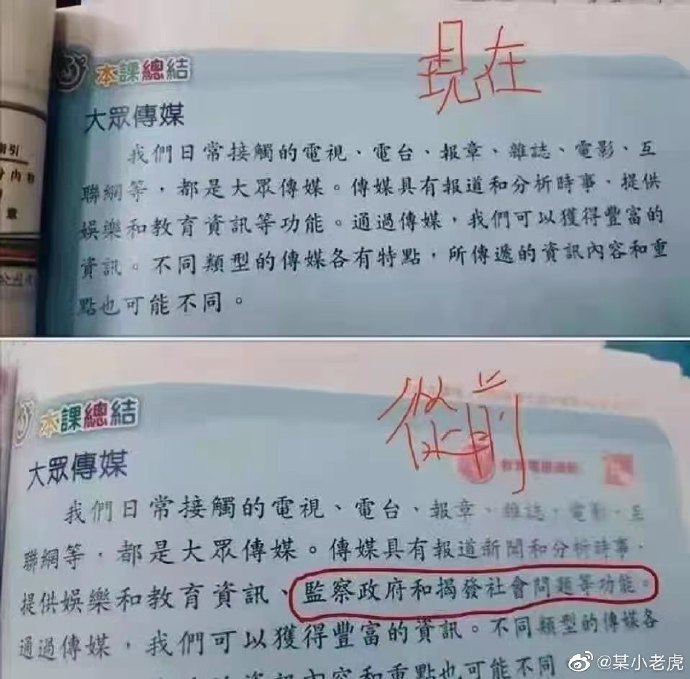 現在
本課總結
大眾傳媒
我們日常接觸的電視、電台、報章、雜誌、電影、互
聯網等，都是大眾傳媒。傳媒具有報道和分析時事、提供
娛樂和教育資訊等功能。通過傳媒，我們可以獲得豐富的
資訊。不同類型的傳媒各有特點，所傳遞的資訊內容和重
點也可能不同。
從前
本課總結
大眾傳媒
我們日常接觸的電視、電台、報章、雜誌、電影、互
聯網等，都是大眾傳媒。傳媒具有報道新聞和分析時事、
提供娛樂和教育資訊、監察政府和揭發社會問題等功能。
通過傳媒，我們可以獲得豐富的資訊。不同類型的傳媒各
的資訊內容和重點也可能不同
@某小老虎